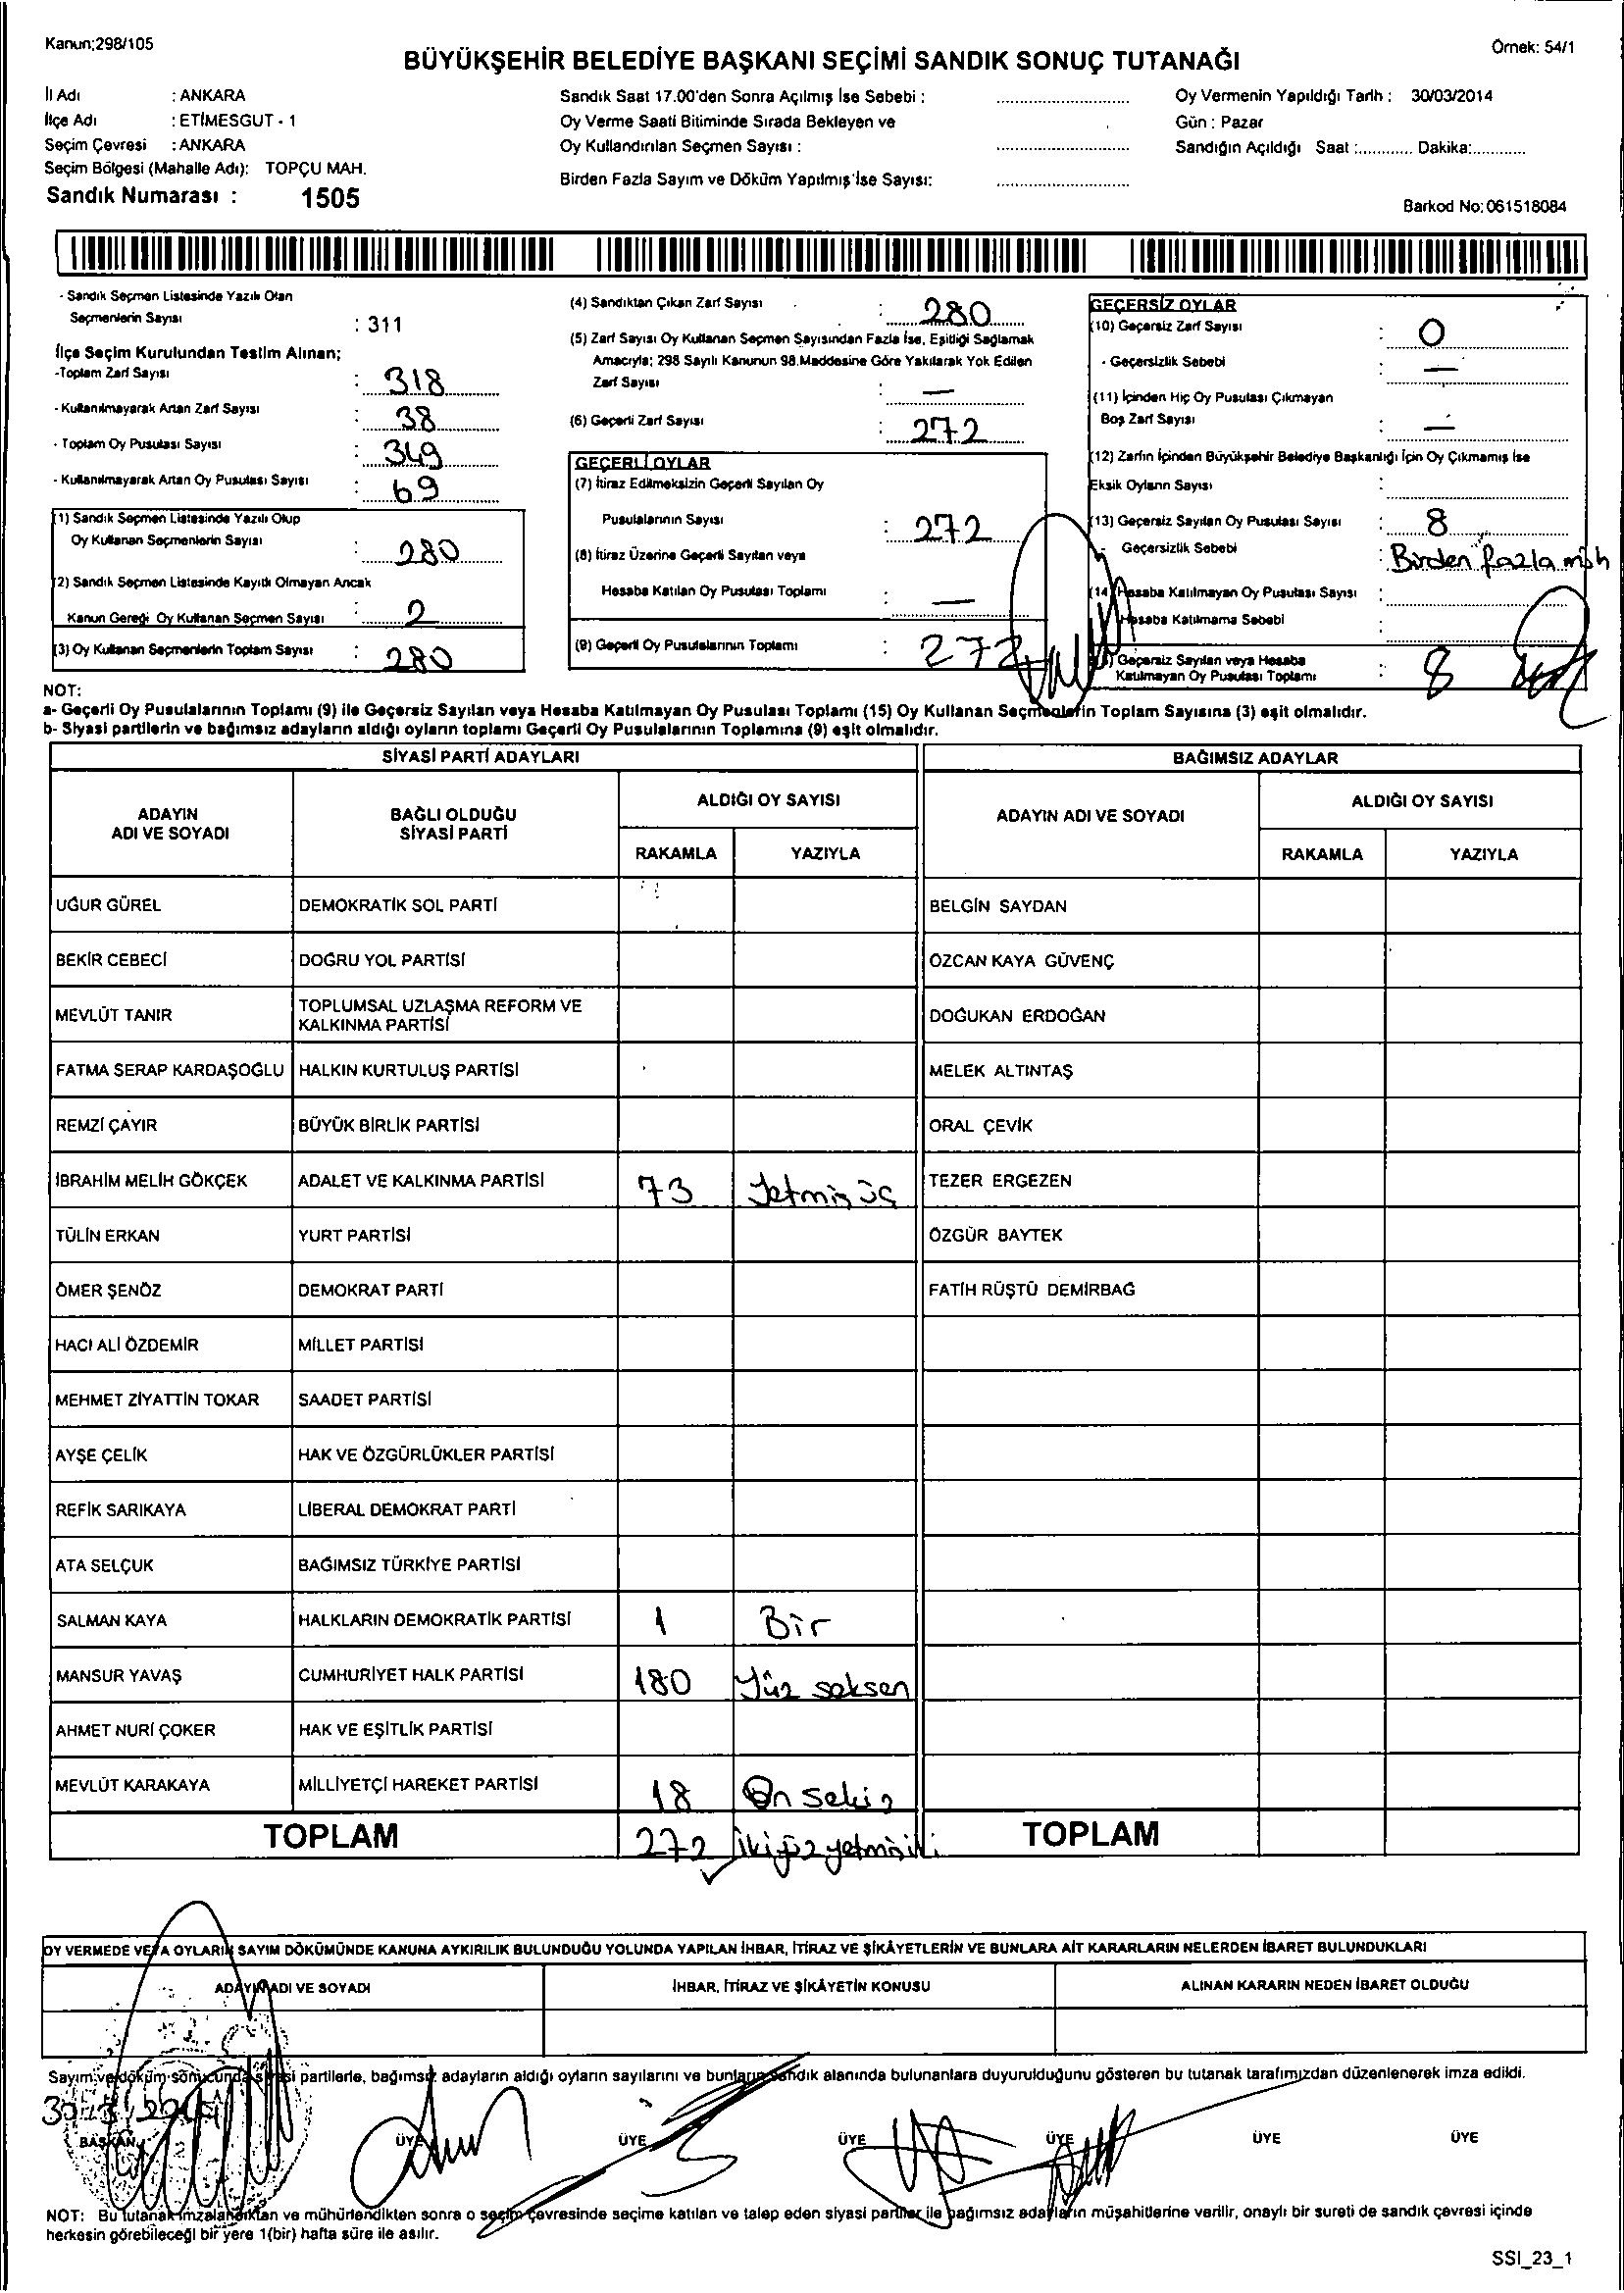 Kanun;298/105
Örnek: 54/1
BÜYÜKŞEHİR BELEDİYE BAŞKANI SEÇİMİ SANDIK SONUÇ TUTANAĞI
İl Adı : ANKARA
İlçe Adı : ETİMESGUT - 1
Seçim Çevresi : ANKARA
Seçim Bölgesi (Mahalle Adı): TOPÇU MAH.
Sandık Numarası : 1505
Sandık Saat 17.00'den Sonra Açılmış İse Sebebi :
Oy Verme Saati Bitiminde Sırada Bekleyen ve
Oy Kullandırılan Seçmen Sayısı :
Birden Fazla Sayım ve Döküm Yapılmış İse Sayısı:
Oy Vermenin Yapıldığı Tarih : 30/03/2014
Gün : Pazar
Sandığın Açıldığı Saat :............ Dakika:...........
Barkod No: 061518084
- Sandık Seçmen Listesinde Yazılı Olan
Seçmenlerin Sayısı : 311
İlçe Seçim Kurulundan Teslim Alınan;
-Toplam Zarf Sayısı : 318
- Kullanılmayarak Artan Zarf Sayısı : 38
- Toplam Oy Pusulası Sayısı : 349
- Kullanılmayarak Artan Oy Pusulası Sayısı : 69
(1) Sandık Seçmen Listesinde Yazılı Olup
Oy Kullanan Seçmenlerin Sayısı : 280
(2) Sandık Seçmen Listesinde Kayıtlı Olmayan Ancak
Kanun Gereği Oy Kullanan Seçmen Sayısı : 2
(3) Oy Kullanan Seçmenlerin Toplam Sayısı : 280
(4) Sandıktan Çıkan Zarf Sayısı : 280
(5) Zarf Sayısı Oy Kullanan Seçmen Sayısından Fazla İse, Eşitliği Sağlamak
Amacıyla; 298 Sayılı Kanunun 98.Maddesine Göre Yakılarak Yok Edilen
Zarf Sayısı : —
(6) Geçerli Zarf Sayısı : 272
GEÇERLİ OYLAR
(7) İtiraz Edilmeksizin Geçerli Sayılan Oy
Pusulalarının Sayısı : 272
(8) İtiraz Üzerine Geçerli Sayılan veya
Hesaba Katılan Oy Pusulası Toplamı : —
(9) Geçerli Oy Pusulalarının Toplamı : 272
GEÇERSİZ OYLAR
(10) Geçersiz Zarf Sayısı : 0
- Geçersizlik Sebebi : —
(11) İçinden Hiç Oy Pusulası Çıkmayan
Boş Zarf Sayısı : —
(12) Zarfın İçinden Büyükşehir Belediye Başkanlığı İçin Oy Çıkmamış İse
Eksik Oyların Sayısı :
(13) Geçersiz Sayılan Oy Pusulası Sayısı : 8
- Geçersizlik Sebebi : Birden fazla müh
(14) Hesaba Katılmayan Oy Pusulası Sayısı :
Hesaba Katılmama Sebebi :
(15) Geçersiz Sayılan veya Hesaba
Katılmayan Oy Pusulası Toplamı : 8
NOT:
a- Geçerli Oy Pusulalarının Toplamı (9) ile Geçersiz Sayılan veya Hesaba Katılmayan Oy Pusulası Toplamı (15) Oy Kullanan Seçmenlerin Toplam Sayısına (3) eşit olmalıdır.
b- Siyasi partilerin ve bağımsız adayların aldığı oyların toplamı Geçerli Oy Pusulalarının Toplamına (9) eşit olmalıdır.
SİYASİ PARTİ ADAYLARI BAĞIMSIZ ADAYLAR
ADAYIN ADI VE SOYADI
BAĞLI OLDUĞU SİYASİ PARTİ
ALDIĞI OY SAYISI
RAKAMLA YAZIYLA
ADAYIN ADI VE SOYADI
ALDIĞI OY SAYISI
RAKAMLA YAZIYLA
UĞUR GÜREL DEMOKRATİK SOL PARTİ BELGİN SAYDAN
BEKİR CEBECİ DOĞRU YOL PARTİSİ ÖZCAN KAYA GÜVENÇ
MEVLÜT TANIR TOPLUMSAL UZLAŞMA REFORM VE KALKINMA PARTİSİ DOĞUKAN ERDOĞAN
FATMA SERAP KARDAŞOĞLU HALKIN KURTULUŞ PARTİSİ MELEK ALTINTAŞ
REMZİ ÇAYIR BÜYÜK BİRLİK PARTİSİ ORAL ÇEVİK
İBRAHİM MELİH GÖKÇEK ADALET VE KALKINMA PARTİSİ 73 Yetmiş üç TEZER ERGEZEN
TÜLİN ERKAN YURT PARTİSİ ÖZGÜR BAYTEK
ÖMER ŞENÖZ DEMOKRAT PARTİ FATİH RÜŞTÜ DEMİRBAĞ
HACI ALİ ÖZDEMİR MİLLET PARTİSİ
MEHMET ZİYATTİN TOKAR SAADET PARTİSİ
AYŞE ÇELİK HAK VE ÖZGÜRLÜKLER PARTİSİ
REFİK SARIKAYA LİBERAL DEMOKRAT PARTİ
ATA SELÇUK BAĞIMSIZ TÜRKİYE PARTİSİ
SALMAN KAYA HALKLARIN DEMOKRATİK PARTİSİ 1 Bir
MANSUR YAVAŞ CUMHURİYET HALK PARTİSİ 180 Yüz seksen
AHMET NURİ ÇOKER HAK VE EŞİTLİK PARTİSİ
MEVLÜT KARAKAYA MİLLİYETÇİ HAREKET PARTİSİ 18 On sekiz
TOPLAM 272 İkiyüz yetmişiki TOPLAM
OY VERMEDE VEYA OYLARIN SAYIM DÖKÜMÜNDE KANUNA AYKIRILIK BULUNDUĞU YOLUNDA YAPILAN İHBAR, İTİRAZ VE ŞİKÂYETLERİN VE BUNLARA AİT KARARLARIN NELERDEN İBARET BULUNDUKLARI
ADAYIN ADI VE SOYADI İHBAR, İTİRAZ VE ŞİKÂYETİN KONUSU ALINAN KARARIN NEDEN İBARET OLDUĞU
Sayım ve döküm sonucunda siyasi partilerle, bağımsız adayların aldığı oyların sayılarını ve bunların sandık alanında bulunanlara duyurulduğunu gösteren bu tutanak tarafımızdan düzenlenerek imza edildi.
30/3/2014
BAŞKAN ÜYE ÜYE ÜYE ÜYE ÜYE ÜYE
NOT: Bu tutanak imzalandıktan ve mühürlendikten sonra o seçim çevresinde seçime katılan ve talep eden siyasi partiler ile bağımsız adayların müşahitlerine verilir, onaylı bir sureti de sandık çevresi içinde
herkesin görebileceği bir yere 1(bir) hafta süre ile asılır.
SSI_23_1